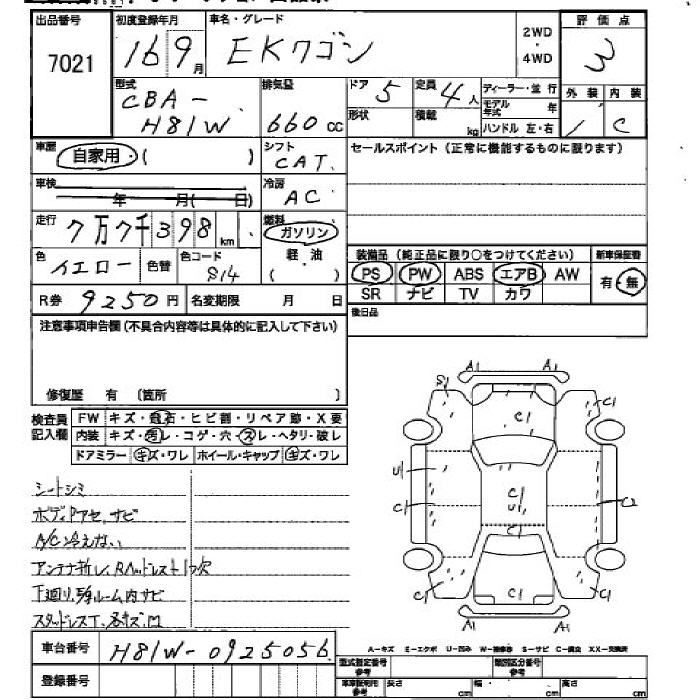 出品番号 7021
初度登録年月 16 9月
車名・グレード EKワゴン
2WD・4WD
評価点 3
外装 内装 C
型式 CBA-H81W
排気量 660 cc
ドア 5
形状
定員 4人
積載 kg
ディーラー・並行
モデル年式 年
ハンドル 左・右
車歴 自家用・( )
シフト CAT.
セールスポイント(正常に機能するものに限ります)
車検 年 月( 日)
冷房 AC
走行 7万7千398 km
燃料 ガソリン 軽・油 ( )
色 イエロー 色替
色コード S14
装備品(純正品に限り○をつけてください)
PS PW ABS エアB AW
SR ナビ TV カワ
新車保証書 有・無
R券 9250円
名変期限 月 日
後日品
注意事項申告欄(不具合内容等は具体的に記入して下さい)
修復歴 有 〔箇所 〕
検査員記入欄
FW キズ・飛石・ヒビ割・リペア跡・X要
内装 キズ・汚レ・コゲ・穴・スレ・ヘタリ・破レ
ドアミラー キズ・ワレ ホイール・キャップ キズ・ワレ
シートシミ
ボディPアセ,サビ
A/C冷えない
アンテナ折レ,Rヘッドレスト1ケ欠
下廻り,エンジンルーム内サビ
スタッドレスT,
A1 A1
S1 C1 A1
U1
C1 C1 U1 C2
C1
C1 C1 C1
A1 A1
A-キズ E-エクボ U-凹み W-補修跡 S-サビ C-腐食 XX-交換済
車台番号 H81W-0925056
登録番号
型式指定番号 参考
類別区分番号 参考
車庫証明用 参考 長さ cm 幅 cm 高さ cm